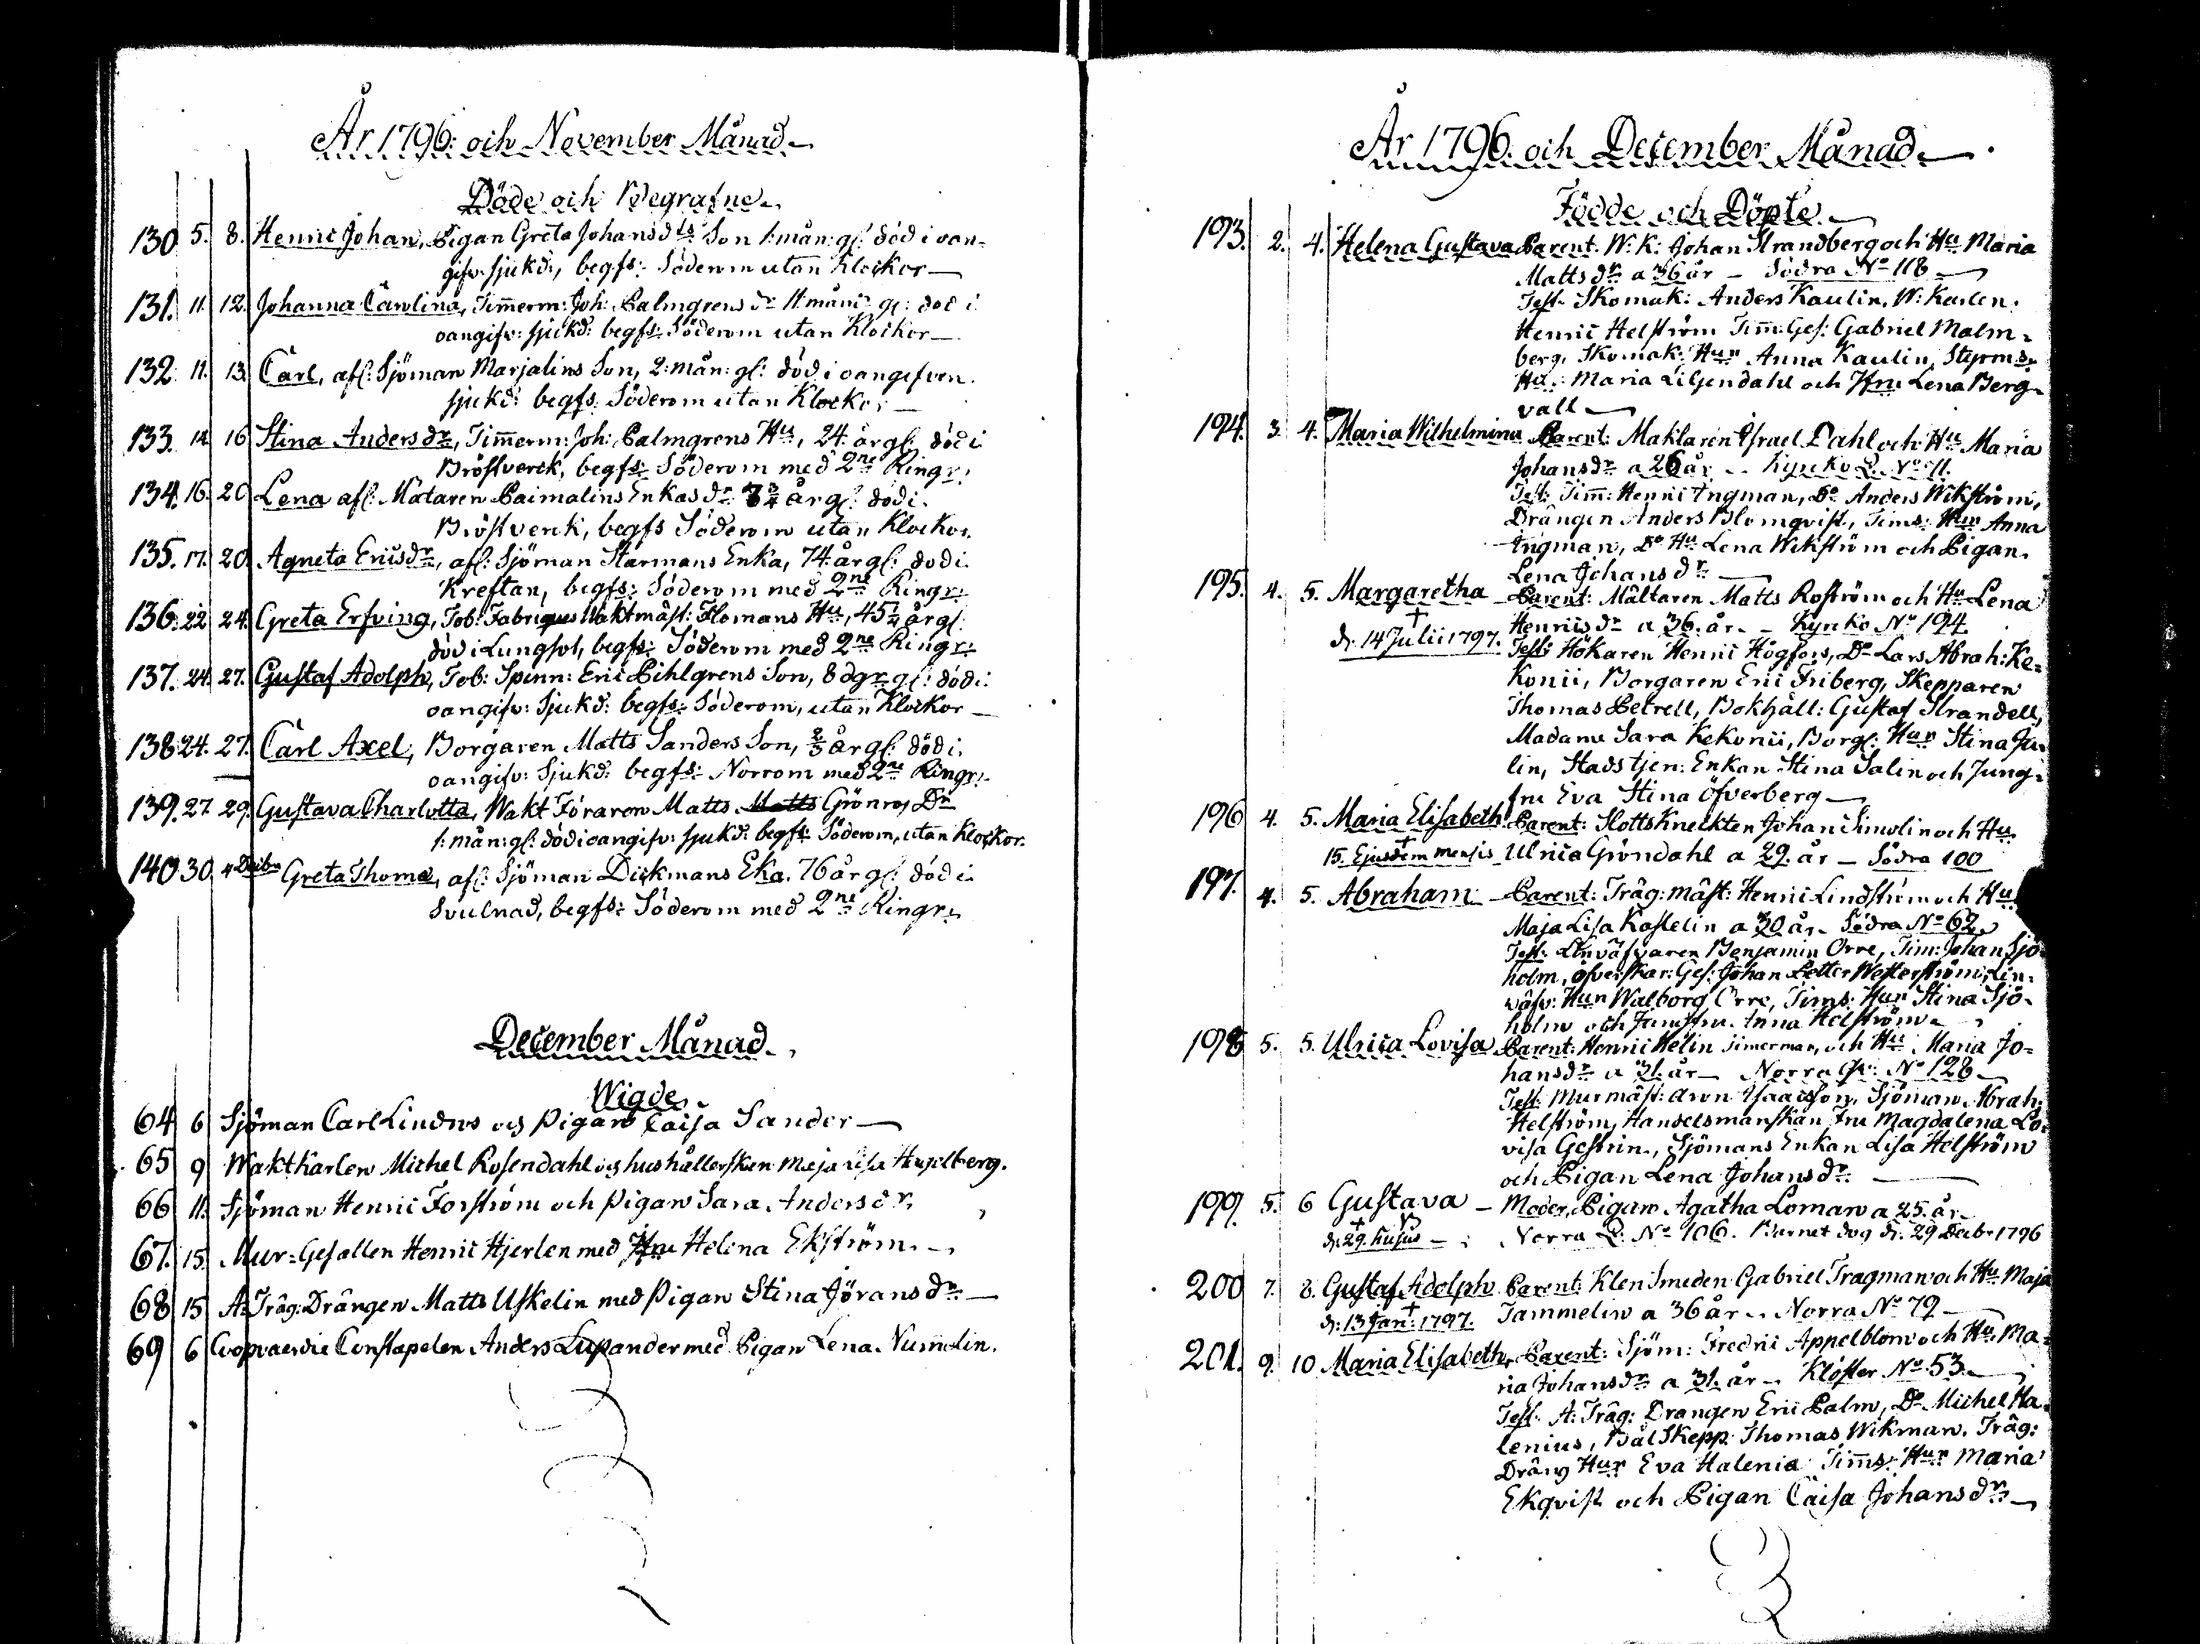 År 1796. och November Månad
Döde och Begrafne.
130 5. 8. Henric Johan, Pigan Greta Johansdrs Son 1. mån: gl: död i oan-
gifv. sjukd:, begfs: Söderom utan Klockor
131. 11. 12. Johanna Carolina, Timmerm: Joh: Palmgrens dr 11 mån: gl: död i
oangifv: sjukd: begfs: Söderom utan Klockor
132. 11. 13. Carl, afl: Sjöman Marjalins Son, 2: mån: gl: död i oangifven
sjukd: begfs: Söderom utan Klockor
133. 14. 16. Stina Andersdr, Timmerm: Joh: Palmgrens Hu, 24. år gl: död i
Bröstverck, begfs: Söderom med 2ne Ringr:
134. 16. 20. Lena afl: Mätaren Paimalins Enkas dr 3/4 år gl: död i
Bröstverk, begfs Söderom utan Klockor.
135. 17. 20. Agneta Ericsdr, afl: Sjöman Starmans Enka, 74. år gl: död i
Kreftan, begfs: Söderom med 2ne Ringr:
136. 22 24. Greta Erfving, Tob: Fabriques Waktmäst: Flomans Hu, 45 1/4 år gl:
död i Lungsot, begfs: Söderom med 2ne Ringr:
137. 24. 27. Gustaf Adolph, Tob: Spinn: Eric Pihlgrens Son, 8 dgr gl: död i
oangifv: Sjukd: begfs: Söderom, utan Klockor
138 24. 27. Carl Axel, Borgaren Matts Sanders Son, 2/3 år gl: död i
oangifv: Sjukd: begfs: Norrom med 2ne Ringr:
139. 27. 29. Gustava Charlotta, Wakt Föraren Matts Matts Grönros Dr
1. mån: gl: död i oangifv: sjukd: begfs: Söderom, utan Klockor.
140 30. 4 Decbr Greta Thomæ, afl: Sjöman Dickmans Eka. 76 år gl: död i
Svulnad, begfs: Söderom med 2ne Ringr:
December Månad.
Wigde.
64 6 Sjöman Carl Lindros och Pigan Caisa Sander
65 9 Waktkarlen Michel Rosendahl och hushållerskan Maja Lisa Hagelberg.
66 11. Sjöman Henric Forström och Pigan Sara Andersdr.
67. 15. Mur-Gesällen Henric Hjerlen med Jfru Helena Ekström.
68 15 A: Träg: Drängen Matts Uskelin med Pigan Stina Jöransdr
69 6 Coopvaerdie Constapelen Anders Lupander med Pigan Lena Nummelin.
År 1796. och December Månad
Födde och Döpte
193. 2. 4. Helena Gustava Parent: W: K: Johan Strandberg och Hu Maria
Mattsdr a 36 år - Södra No 118
Test: Skomak: Anders Kaulin, W: Karlen
Henric Helström Timm: Ges: Gabriel Malm-
berg, Skomak: Hun Anna Kaulin, Styrms
Hu: Maria Liljendahl och Jfru Lena Berg-
vall
194. 3. 4. Maria Wilhelmina Parent: Mäklaren Israel Dahl och Hu Maria
Johansdr a 26 år - Kyrko Q. No 71.
Test: Timm: Henric Ingman, Do Anders Wikström,
Drängen Anders Blomqvist, Tims: Hun Anna
Ingman, Do Hu Lena Wikström och Pigan
Lena Johansdr
195. 4. 5. Margaretha Parent: Mältaren Matts Roström och Hu Lena
d: 14 Julii 1797. Henricsdr a 36. år - Kyrko No 194.
Test: Hökaren Henric Högfors, Do Lars Abrah: Ke-
konii, Borgaren Eric Friberg, Skepparen
Thomas Petrell, Bokhåll: Gustaf Strandell,
Madame Sara Kekonii, Borg: Hun Stina Ju-
lin, Stadstjen: Enkan Stina Salin och Jung-
fru Eva Stina Öfverberg
196 4. 5. Maria Elisabeth Parent: Slottskneckten Johan Simolin och Hu
15. Ejusdem mensis Ulrica Gröndahl a 29. år - Södra 100
197. 4. 5. Abraham Parent: Träg: mäst: Henric Lindström och Hu
Maja Lisa Kastelin a 30 år - Södra No 62
Test: Linväfvaren Benjamin Orre, Tim: Johan Sjö-
holm, öfverskär: Ges: Johan Petter Wetterström, Lin-
wäfv: Hun Walborg Orre, Tims: Hun Stina Sjö-
holm och Jungfru Anna Helström
198 5. 5. Ulrica Lovisa Parent: Henric Helin Timerman, och Hu Maria Jo-
hansdr a 31. år - Norra Qv: No 128
Test: Murmäst: Aron Isaacsson, Sjöman Abrah:
Helström, Handelsmanskan Fru Magdalena Lo-
visa Gestrin, Sjömans Enkan Lisa Helström
och Pigan Lena Johansdr
199. 5. 6 Gustava - Moder, Pigan Agatha Loman a 25. år
d: 29. hujus Norra Q. No 106. Barnet dog d: 29 Decbr 1796
200 7. 8. Gustaf Adolph Parent: Klensmeden Gabriel Tragman och Hu Maja
d: 13 Jan: 1797. Tammelin a 36 år - Norra No 79
201. 9. 10 Maria Elisabeth, Parent: Sjöm: Fredric Appelblom och Hu Ma-
ria Johansdr a 31. år - Klöster No 53.
Test: A: Träg: Drängen Eric Palm, Do Michel Ha-
lenius, Bålskepp: Thomas Wikman, Träg:
Dräng Hun Eva Halenia Timms: Hun Maria
Ekqvist och Pigan Caisa Johansdr